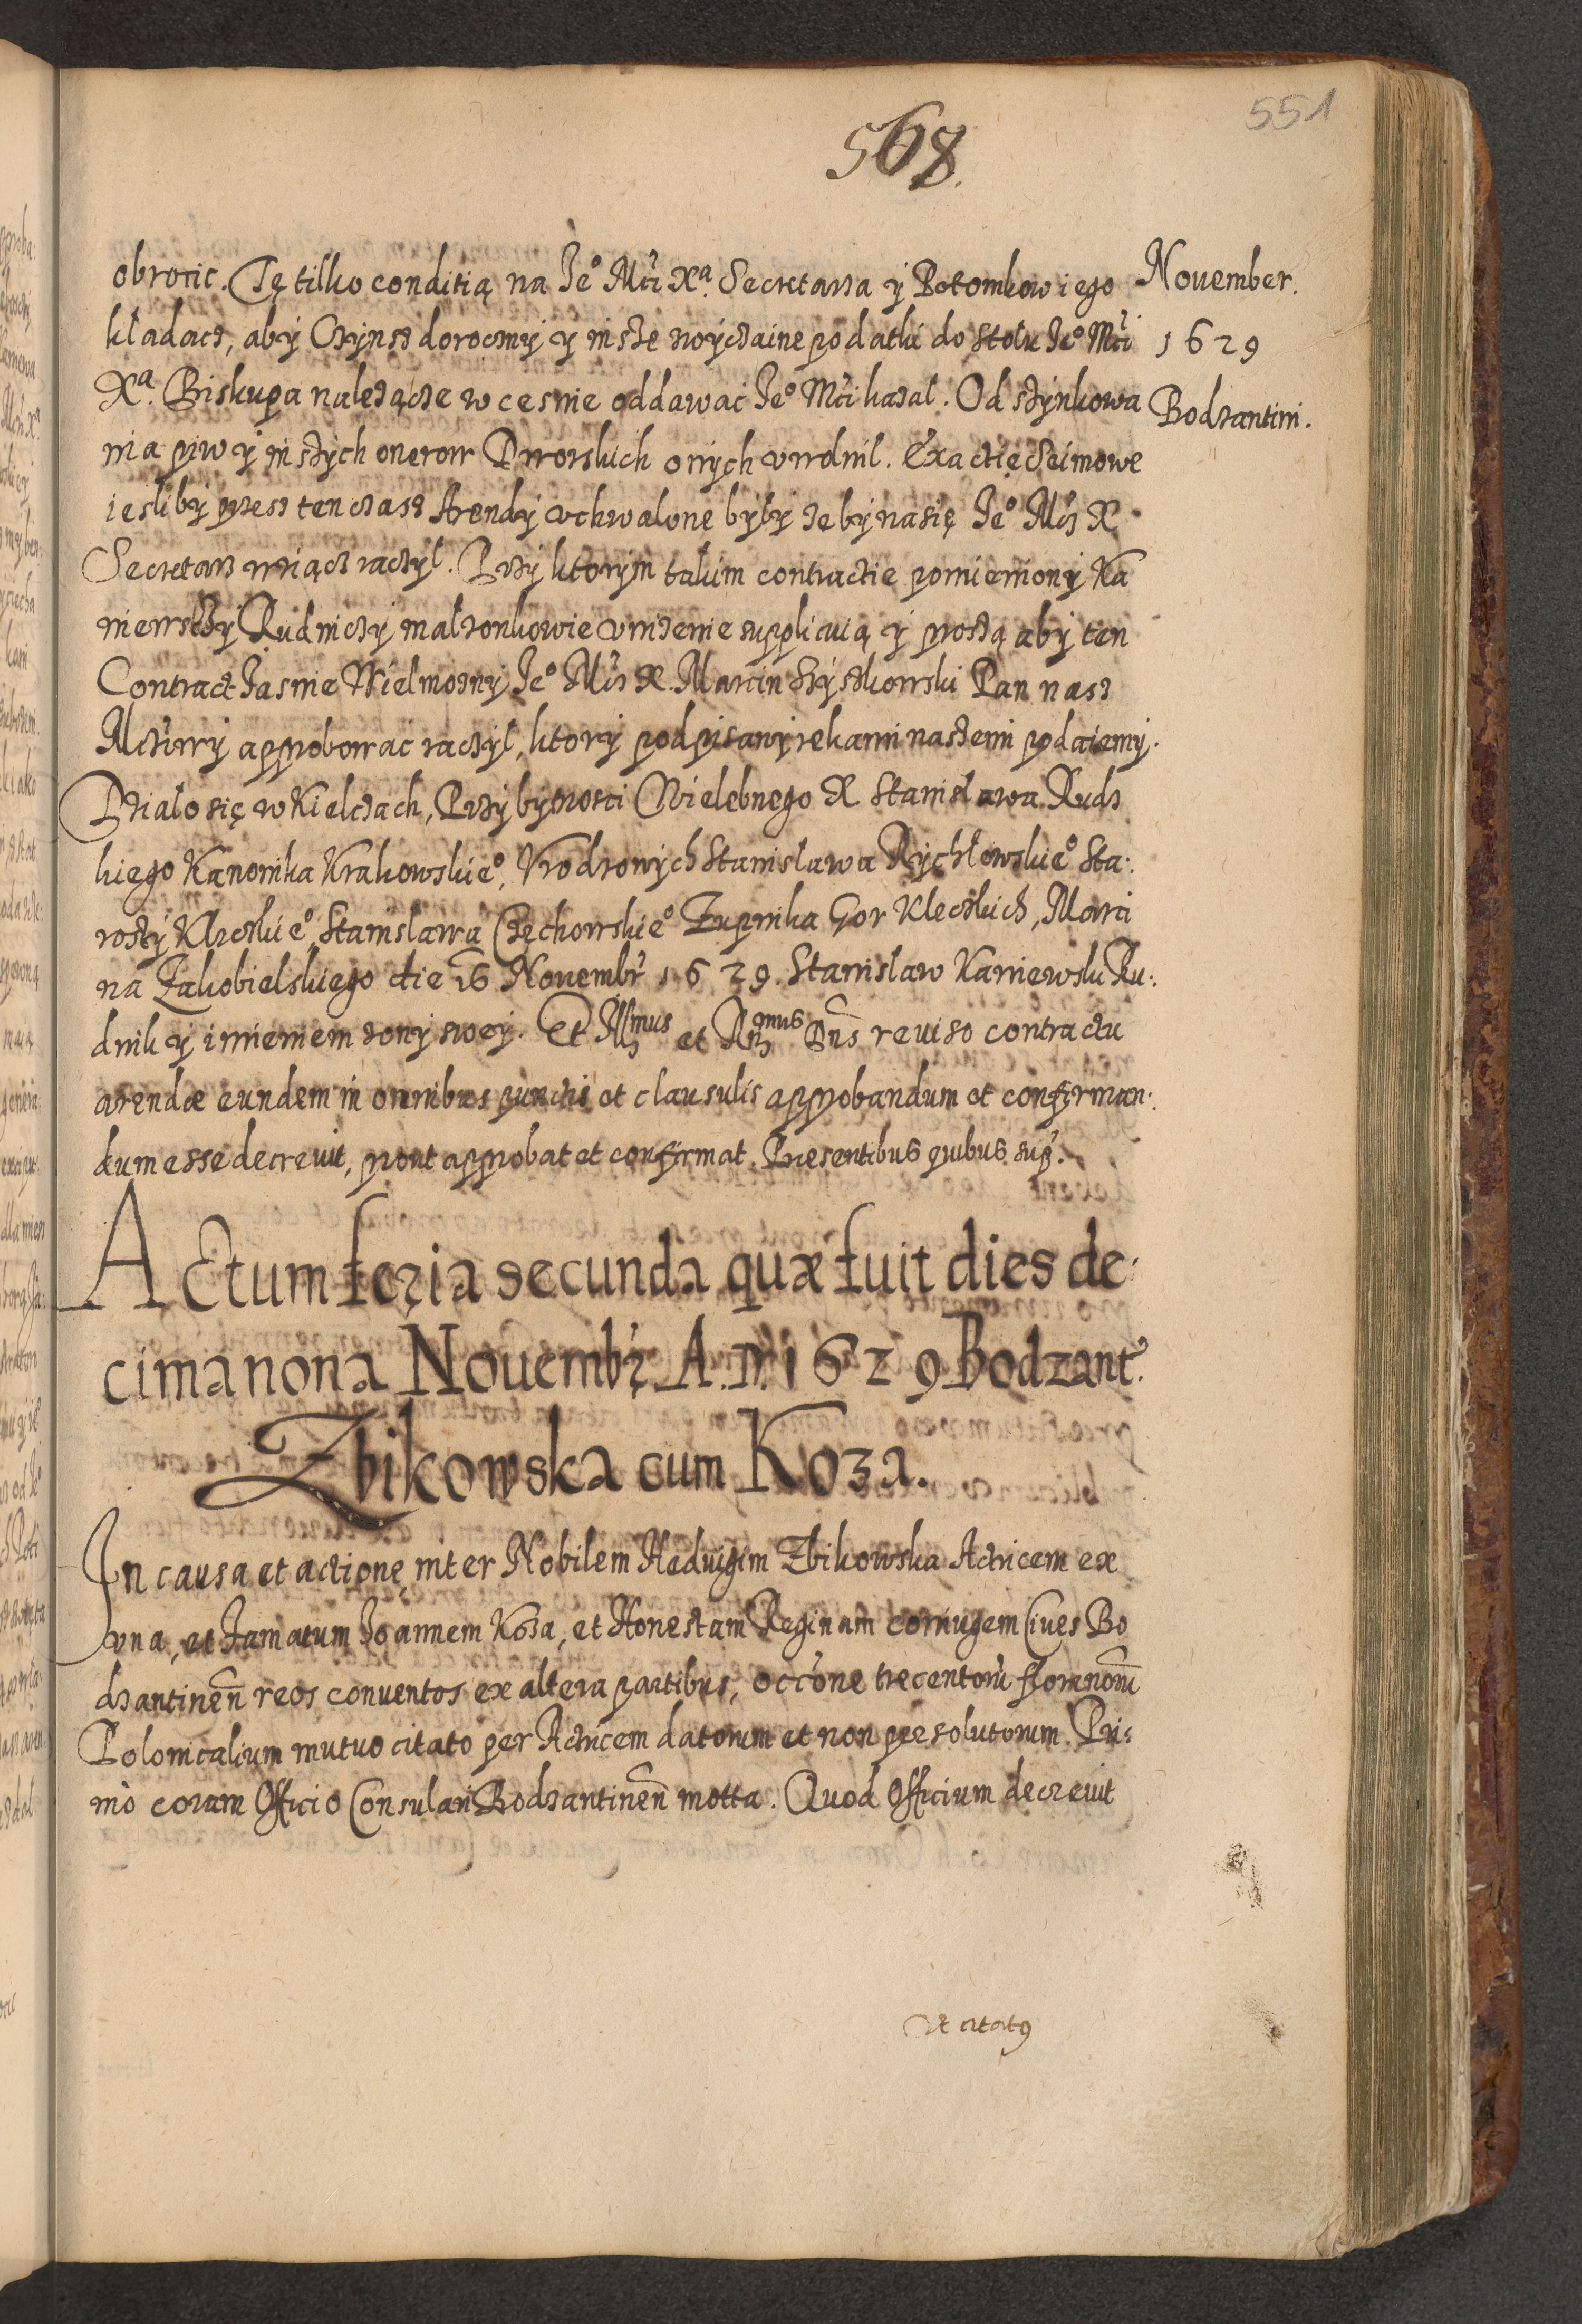 551
568.
November.
1629
Bodzantini.
obrocic. Tę tilko conditią na Jeº Mci Xª. Secretarza y Potomkow iego
kładacz, aby Czynsz doroczny y insze zwyczaine podatki do Stolu Jeº Mci
Xª. Biskupa nalezącze w cesnie oddawac Jeº Mci kazal. Od szynkowa
nia piw y inszych onerow Dworskich onych vwolnil. Exactie Seimowe
iesliby przesz ten czasz Arendy vchwalone były zeby na się Jeº Mcz X
Secretarz wziącz raczył. Przy ktorym takim contractie pomieniony Ka
niewszczy Rudniczy malzonkowie vnizenie supplicuią y proszą aby ten
Contract Jasnie Wielmozny Jeº Mcz X. Marcin Szyszkowski Pan nasz
Mcziwy approbowac raczył, ktory podpisany rekami naszemi podaiemy.
Działo się w Kielczach, Przy bytnosci Wielebnego X Stanisława Rudz
kiego Kanonika Krakowskieº, Vrodzonych Stanisława Rychłowskieº Sta:
rosty Kleczkieº, Stanisława Czechowskieº Zupnika Gor Kleczkich, Marci
na Zakobielskiego die 16 Novembr 1629. Stanisław Kaniewski Ru:
dnik y imieniem zony swey. Et Illmus et Rndmus Dns reviso contractu
arendæ eundem in omnibus punctis et clausulis approbandum et confirman:
dum esse decrevit, prout approbat et confirmat. Præsentibus quibus sup.
Actum feria secunda quæ fuit dies de:
cima nona Nouembr A. D. 1629 Bodzant.
Zbikowska cum Koza.
In causa et actione inter Nobilem Hedvigim Zbikowska Actricem ex
vna, et Famatum Joannem Koza, et Honestam Reginam coniugem Cives Bo
dzantinen reos conventos ex altera partibus, occone trecentoru florenoru
Polonicalium mutuo citato per Actricem datorum et non persolutorum. Pri:
mò coram Officio Consulari Bodzantinen motta. Quod Officium decrevit
vt citatq